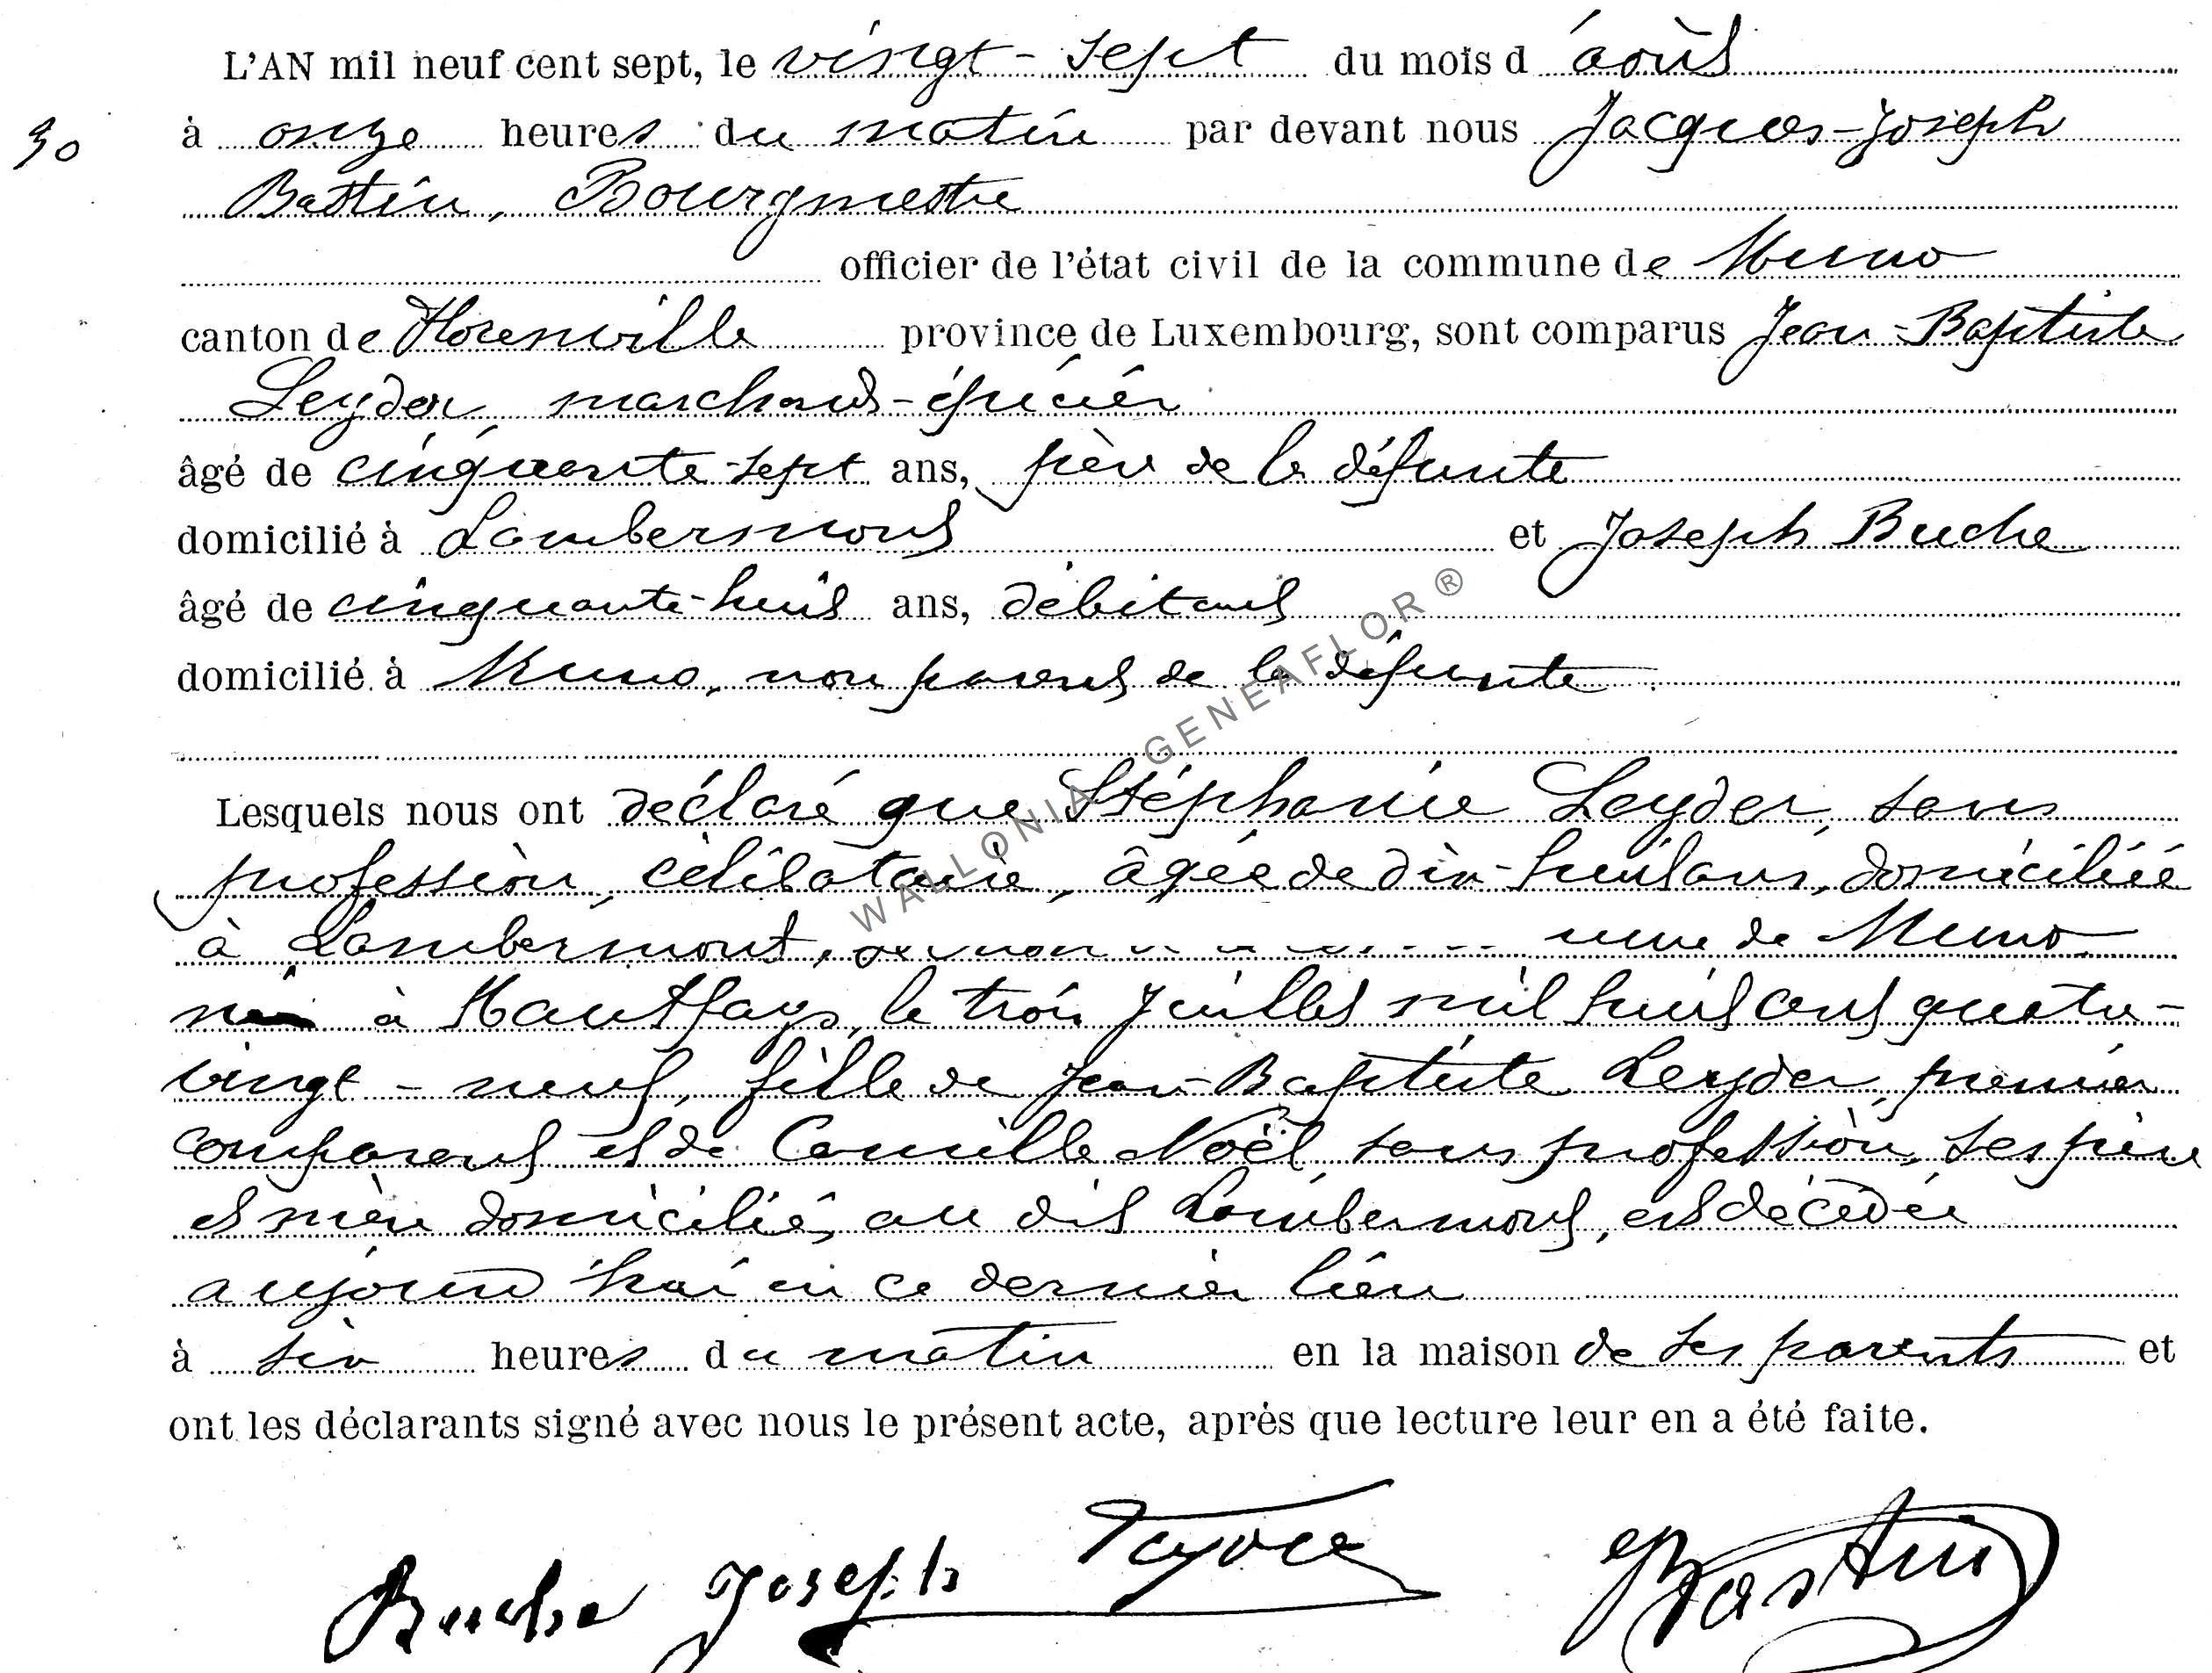 L'AN mil neuf cent sept, le vingt-sept du mois d'août
30
à onze heures du matin par devant nous Jacques-Joseph
Bastin, Bourgmestre
officier de l'état civil de la commune de Muno
canton de Florenville province de Luxembourg, sont comparus Jean-Baptiste
Leyder, marchand-épicier
âgé de cinquante-sept ans, père de la défunte
domicilié à Lambermont et Joseph Buche
âgé de cinquante-huit ans, débitant
domicilié à Muno, non parent de la défunte
WALLONIA GENEAFLOR ®
Lesquels nous ont déclaré que Stéphanie Leyder, sans
profession, célibataire, âgée de dix-huit ans, domiciliée
à Lambermont, de Muno
née à Hautfays, le trois Juillet mil huit cent quatre-
vingt-neuf, fille de Jean-Baptiste Leyder, premier
comparant et de Camille Noël, sans profession, ses père
et mère domiciliés au dit Lambermont, est décédée
aujourd'hui en ce dernier lieu
à six heures du matin en la maison de ses parents et
ont les déclarants signé avec nous le présent acte, après que lecture leur en a été faite.
Buche Joseph Bastin